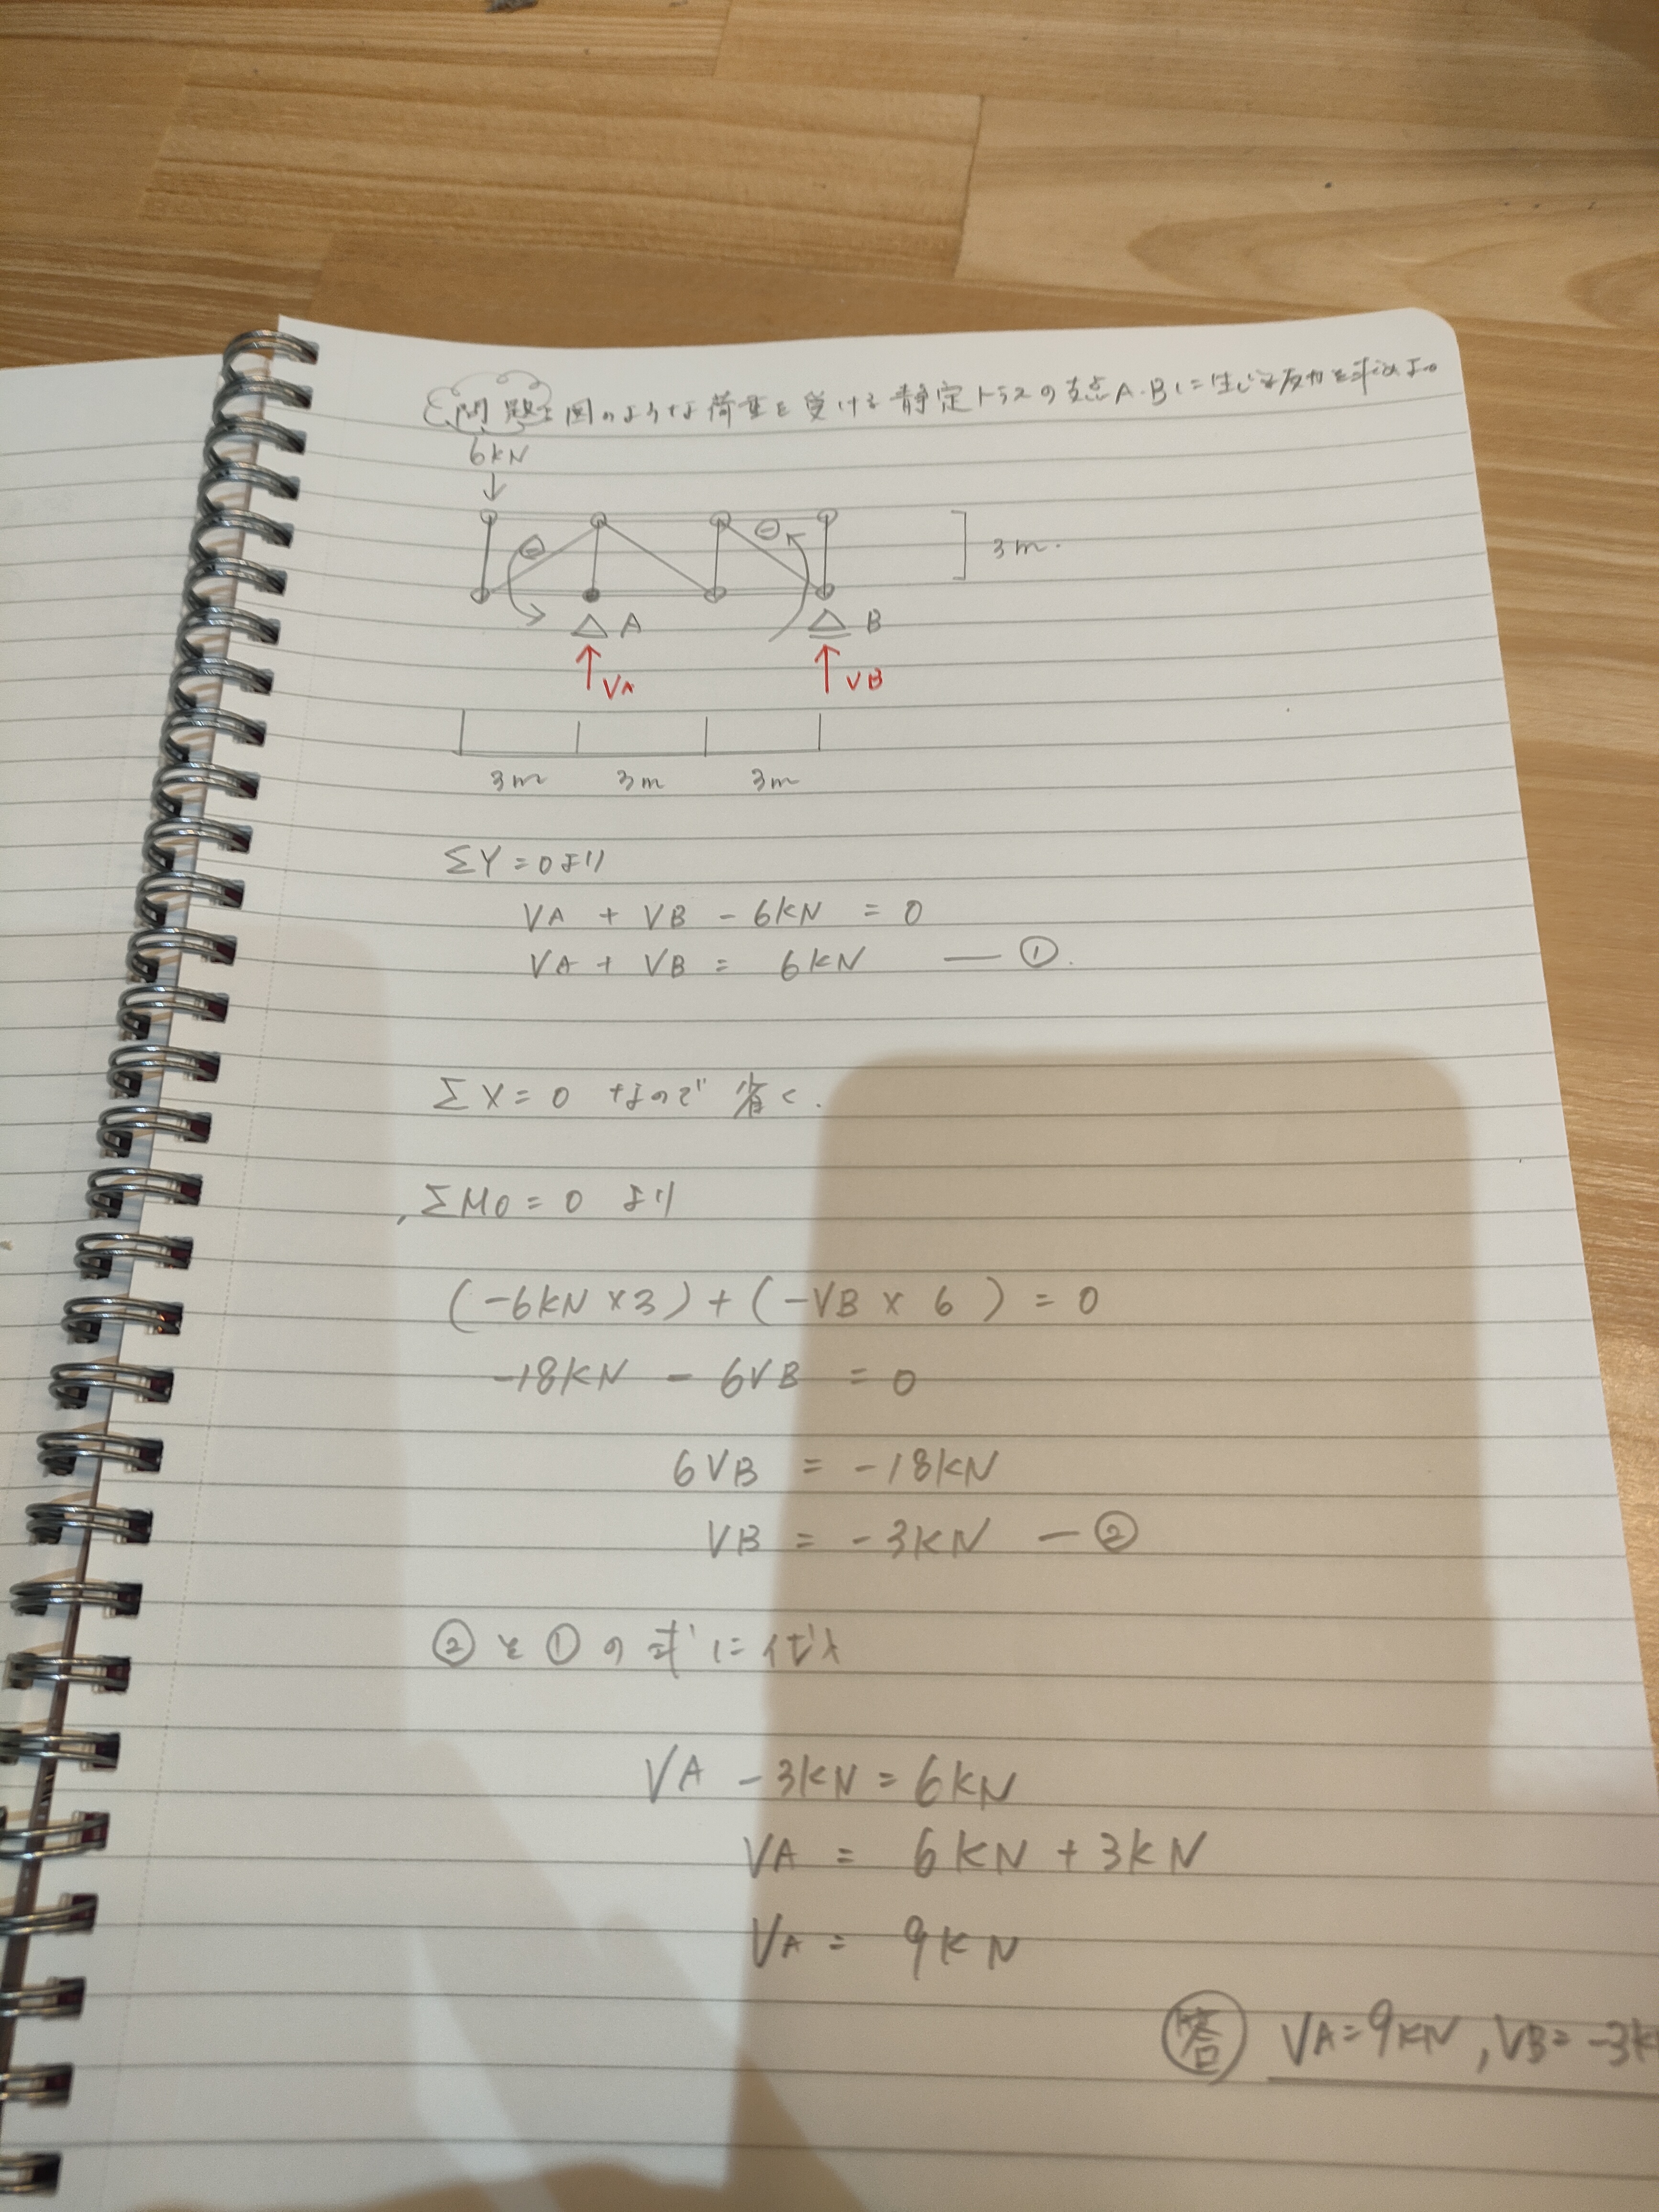 問題 図のような荷重を受ける静定トラスの支点A.Bに生じる反力を求めよ。
6kN
↓
⊖ ⊖
3m.
A B
VA VB
3m 3m 3m
ΣY=0より
VA + VB - 6kN = 0
VA + VB = 6kN ― ①.
ΣX=0 なので 省く.
ΣMO=0 より
(-6kN×3)+(-VB×6)=0
-18kN - 6VB = 0
6VB = -18kN
VB = -3kN ― ②
②を①の式に代入
VA -3kN=6kN
VA = 6kN+3kN
VA = 9kN
答 VA=9kN, VB=-3k